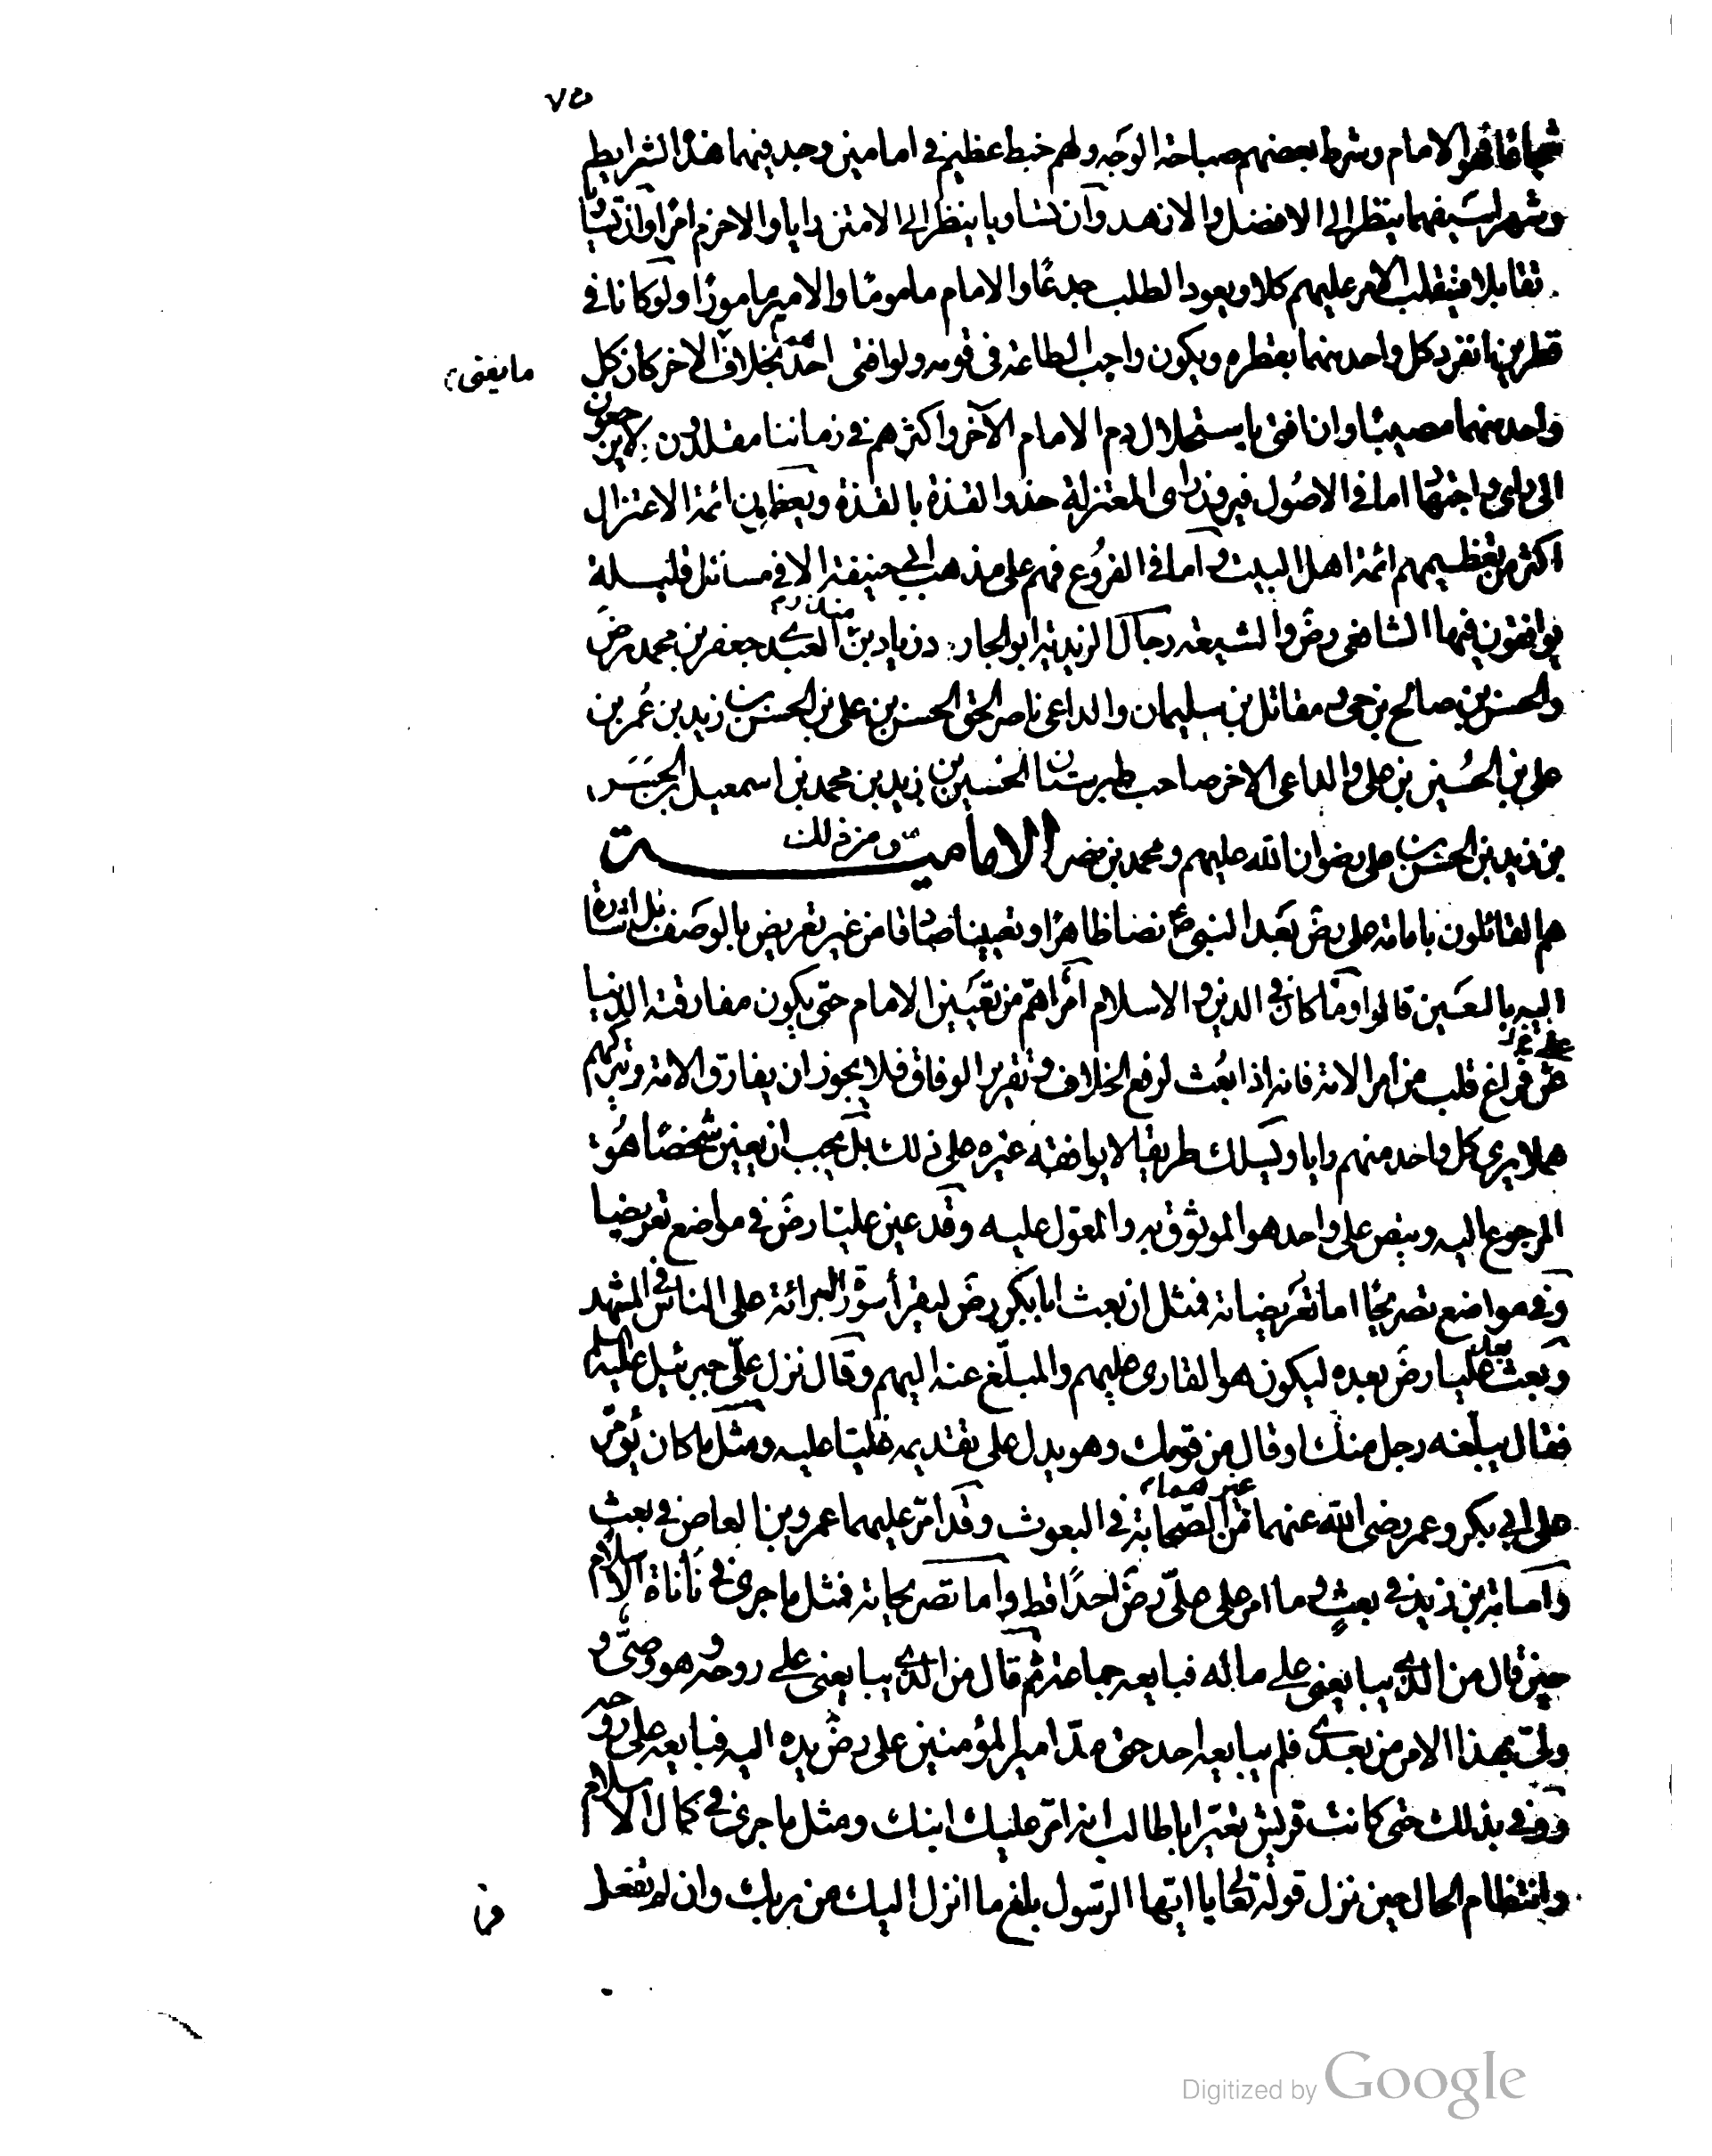 ٧٥
شجاعا فهو الامام وشرط بعضهم صباحة الوجه ولهم خبط عظيم في امامين وجد فيهما هذه الشرايط
وشهرا سيفهما ينظر الى الافضل والازهد وان تساويا ينظر الى الامتن رايا والاحزم امرا وان تساويا
تقابلا فينقلب الامر عليهم كلا ويعود الطلب جذعا والامام ماموما والامير مامورا ولو كانا في
قطرين انفرد كل واحد منهما بقطره ويكون واجب الطاعة في قومه ولو افتى احدهما بخلاف الاخر كان كل
ما يفتى
واحد منهما مصيبا وان افتى باستحلال دم الامام الآخر واكثرهم في زماننا مقلدون لا يرجعون
الى راى واجتهاد اما في الاصول فيرون راى المعتزلة حذو القذة بالقذة ويعظمون ائمة الاعتزال
اكثر من تعظيمهم ائمة اهل البيت واما في الفروع فهم على مذهب ابي حنيفة الا في مسائل قليلة
يوافقون فيها الشافعى رض والشيعة رجال الزيدية ابو الجارود زياد بن منذر العبدى جعفر بن محمد رض
والحسن بن صالح بن حى ومقاتل بن سليمان والداعى ناصر الحق الحسن بن على بن الحسن بن زيد بن عمر بن
على بن الحسين بن على والداعى الاخر صاحب طبرستان الحسين بن زيد بن محمد بن اسمعيل بن الحسن
بن زيد بن الحسن بن على رضوان الله عليهم ومحمد بن نصر الامامية ومن ذلك
هم القائلون بامامة على رض بعد النبى ع نصا ظاهرا وتعيينا صادقا من غير تعريض بالوصف بل اشارة
اليه بالعين قالوا وما كان في الدين والاسلام امر اهم من تعيين الامام حتى يكون مفارقته الدنيا
على فراغ قلب من أمر الامة فانه اذا بعث لرفع الخلاف وتقرير الوفاق فلا يجوز ان يفارق الامة ويتركهم
هملا يرى كل واحد منهم رايا ويسلك طريقا لا يوافقه غيره على ذلك بل يجب ان يعين شخصا هو
المرجوع اليه وينص على واحد هو الموثوق به والمعول عليه وقد عين عليا رض في مواضع تعريضا
وفى مواضع تصريحا اما تعريضاته فمثل ان بعث ابا بكر رض ليقرأ سورة البرائة على الناس في المشهد
وبعث بعده عليا رض بعده ليكون هو القارى عليهم والمبلّغ عنه اليهم وقال نزل علىّ جبرئيل عليه السلم
فقال يبلّغه رجل منك او قال من قومك وهو يدل على تقديمه عليا عليه ومثل ما كان يؤمّر
على ابي بكر وعمر رضى الله عنهما غيرهما من الصحابة في البعوث وقد امّر عليهما عمرو بن العاص في بعث
واسامة بن زيد في بعثٍ وما امر على علىّ رض احدًا قط واما تصريحاته فمثل ما جرى في نأناة الاسلام
حين قال من الذى يبايعنى على ماله فبايعه جماعة ثم قال من الذى يبايعنى على روحه وهو وصىّ و
ولىّ هذا الامر من بعدى فلم يبايعه احد حتى مدّ امير المؤمنين على رض يده اليه فبايعه على روحه
ووفى بذلك حتى كانت قريش تعير ابا طالب انه امّر عليك ابنك ومثل ما جرى في كمال الاسلام
وانتظام الحال حين نزل قوله تعالى يا ايّها الرّسول بلغ ما انزل اليك من ربك وان لم تفعل
فما
Digitized by Google